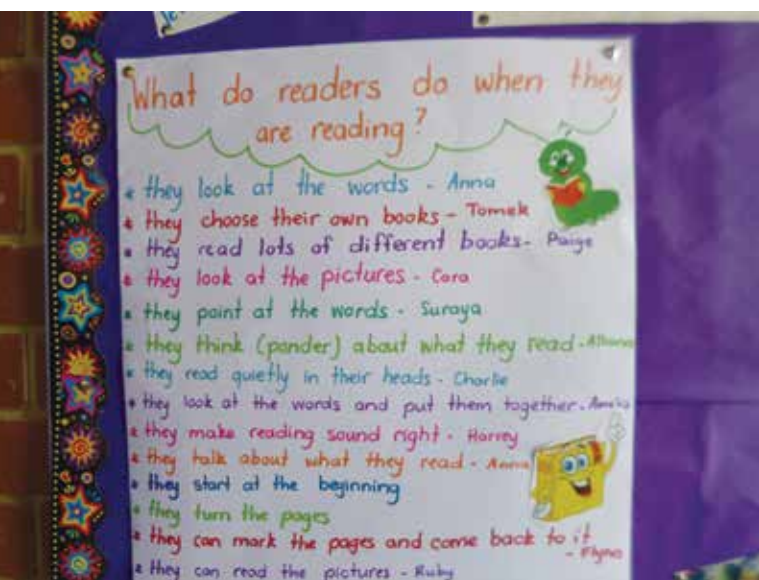 What do readers do when they
are reading?
* they look at the words - Anna
* they choose their own books - Tomek
* they read lots of different books - Paige
* they look at the pictures - Cara
* they point at the words - Suraya
* they think (ponder) about what they read -
* they read quietly in their heads - Charlie
* they look at the words and put them together -
* they make reading sound right - Harvey
* they talk about what they read - Anna
* they start at the beginning
* they turn the pages
* they can mark the pages and come back to it
* they can read the pictures - Ruby